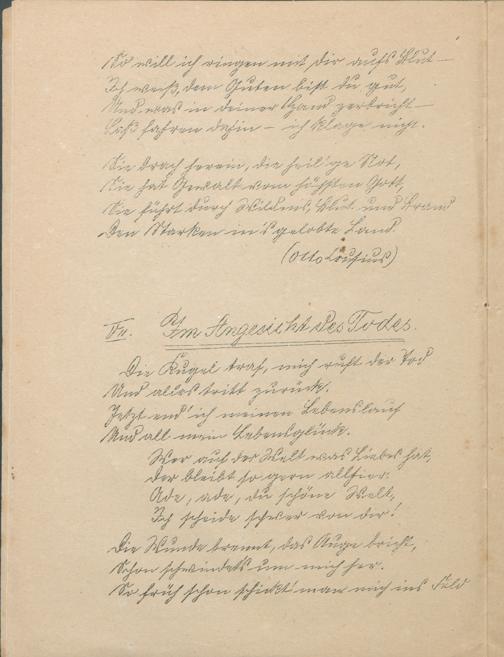 So will ich ringen mit dir aufs Blut –
Ich weiß, dem Guten bist du gut,
Und was in deiner Hand zerbricht –
Laß fahren dahin – ich klage nicht.
Sie brach herein, die heilige Not,
Sie hat Gewalt vom höchsten Gott,
Sie führt durch Wildnis, Blut und Brand
Den Starken in's gelobte Land.
(Otto
IV. Im Angesicht des Todes.
Die Kugel traf, mich ruft der Tod
Und alles tritt zurück.
Jetzt end' ich meinen Lebenslauf
Und all mein Lebensglück.
Wer auf der Welt was Liebes hat,
der bleibt so gern allhier.
Ade, ade, du schöne Welt,
Ich scheide schwer von dir!
Die Wunde brennt, das Auge bricht,
Schon schwindets um mich her.
So früh schon schickt man mich ins Feld